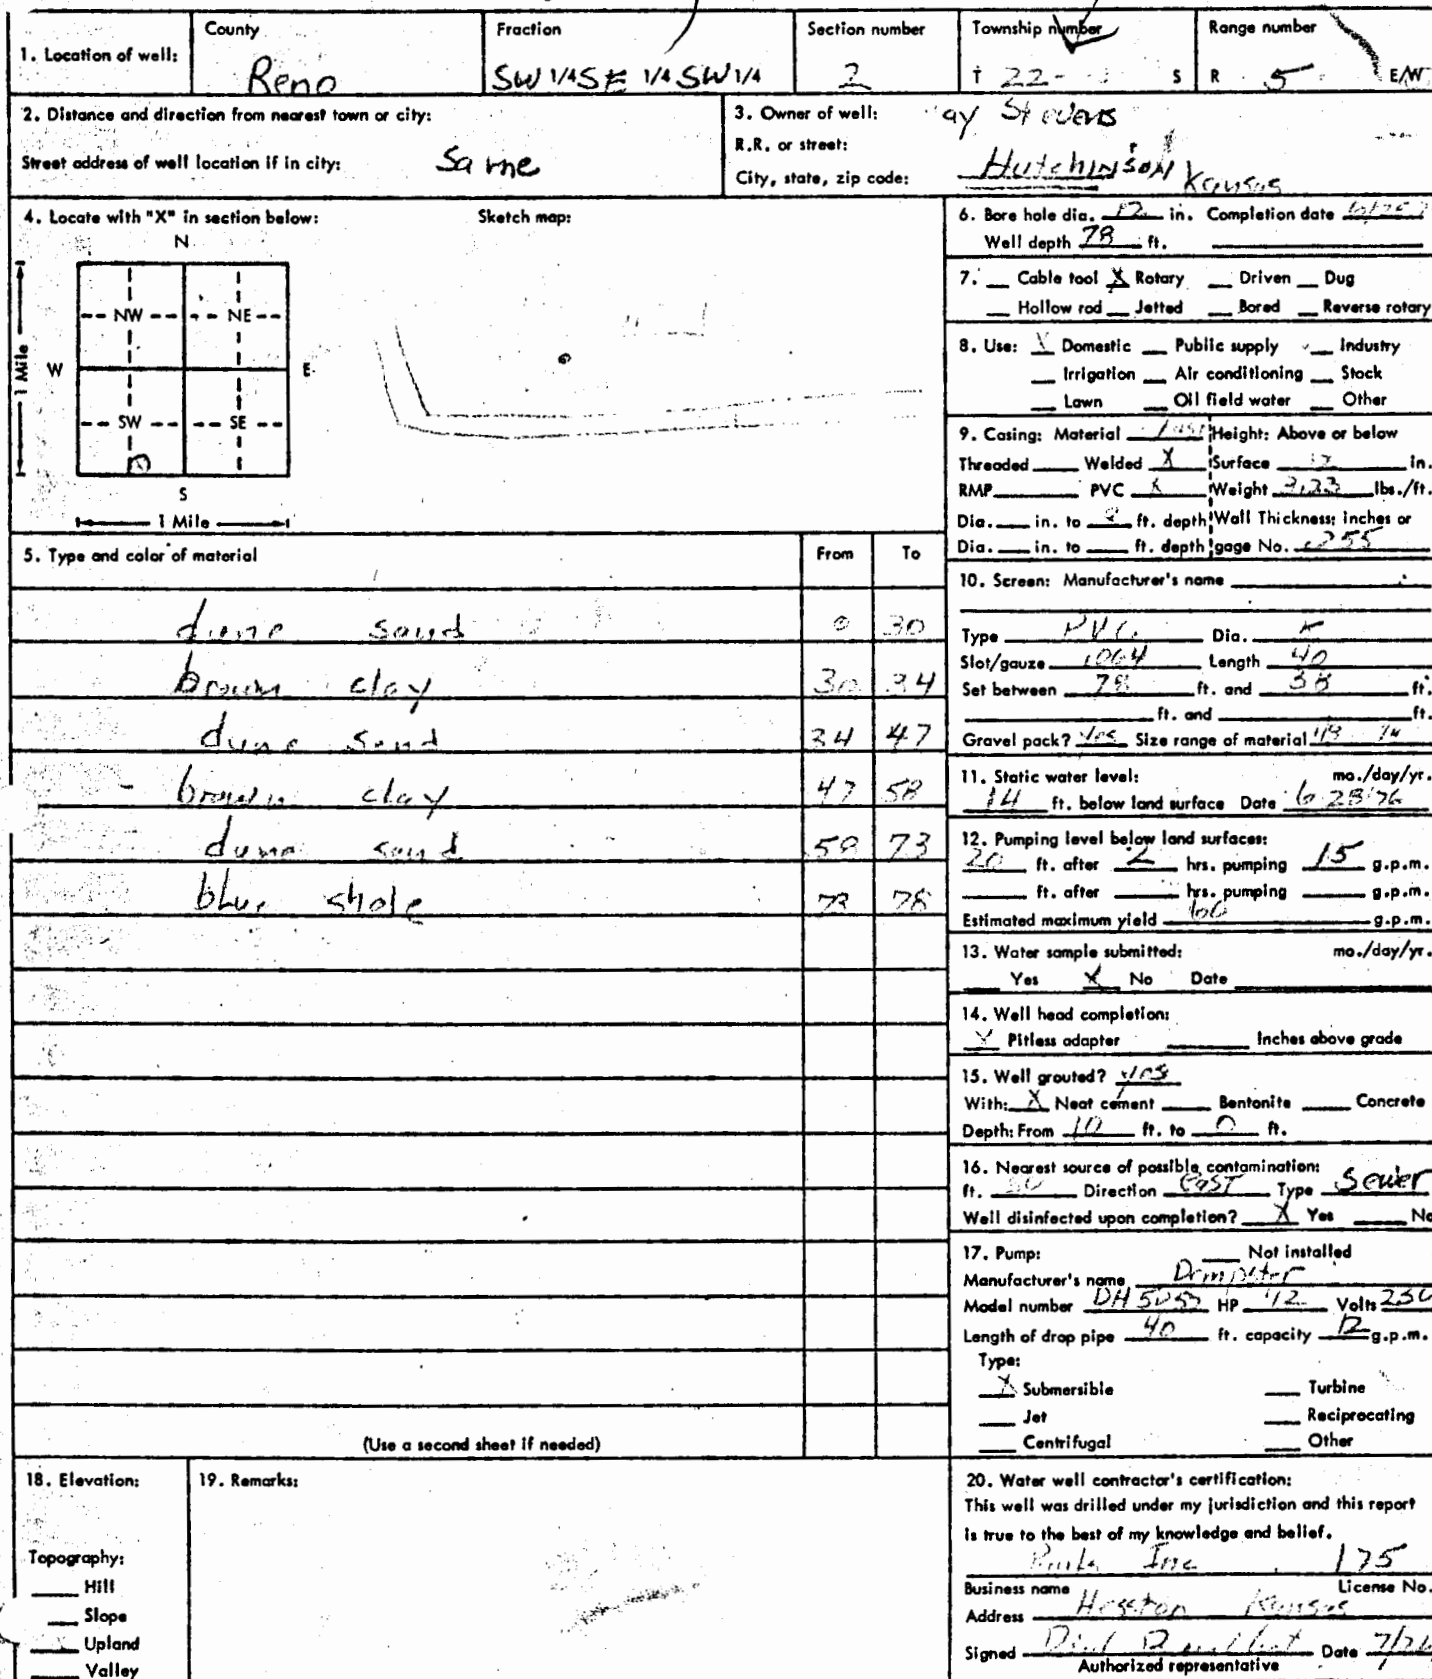 1. Location of well: County Reno Fraction SW 1/4 SE 1/4 SW 1/4 Section number 2 Township number T 22 S Range number R 5 E/W
2. Distance and direction from nearest town or city:
Street address of well location if in city: Same
3. Owner of well: ay Stevens
R.R. or street:
City, state, zip code: Hutchinson Kansas
4. Locate with "X" in section below: Sketch map:
N
NW NE
W E
SW SE
S
1 Mile
1 Mile
5. Type and color of material From To
dune sand 0 30
brown clay 30 34
dune sand 34 47
brown clay 47 58
dune sand 58 73
blue shale 73 78
(Use a second sheet if needed)
6. Bore hole dia. 12 in. Completion date
Well depth 78 ft.
7. Cable tool X Rotary Driven Dug
Hollow rod Jetted Bored Reverse rotary
8. Use: X Domestic Public supply Industry
Irrigation Air conditioning Stock
Lawn Oil field water Other
9. Casing: Material Height: Above or below
Threaded Welded X Surface 12 in.
RMP PVC X Weight lbs./ft.
Dia. in. to ft. depth Wall Thickness: inches or
Dia. in. to ft. depth gage No. .255
10. Screen: Manufacturer's name
Type PVC Dia.
Slot/gauze Length 40
Set between 78 ft. and 38 ft.
ft. and ft.
Gravel pack? Yes Size range of material
11. Static water level: mo./day/yr.
14 ft. below land surface Date 6 28 76
12. Pumping level below land surfaces:
20 ft. after 2 hrs. pumping 15 g.p.m.
ft. after hrs. pumping g.p.m.
Estimated maximum yield g.p.m.
13. Water sample submitted: mo./day/yr.
Yes X No Date
14. Well head completion:
X Pitless adapter Inches above grade
15. Well grouted? yes
With: X Neat cement Bentonite Concrete
Depth: From 10 ft. to 0 ft.
16. Nearest source of possible contamination:
ft. Direction East Type Sewer
Well disinfected upon completion? X Yes No
17. Pump: Not installed
Manufacturer's name Dempster
Model number HP 1/2 Volts 230
Length of drop pipe 40 ft. capacity 12 g.p.m.
Type:
X Submersible Turbine
Jet Reciprocating
Centrifugal Other
18. Elevation:
Topography:
Hill
Slope
Upland
Valley
19. Remarks:
20. Water well contractor's certification:
This well was drilled under my jurisdiction and this report
is true to the best of my knowledge and belief.
Inc 175
Business name License No.
Address Hesston Kansas
Signed Date
Authorized representative